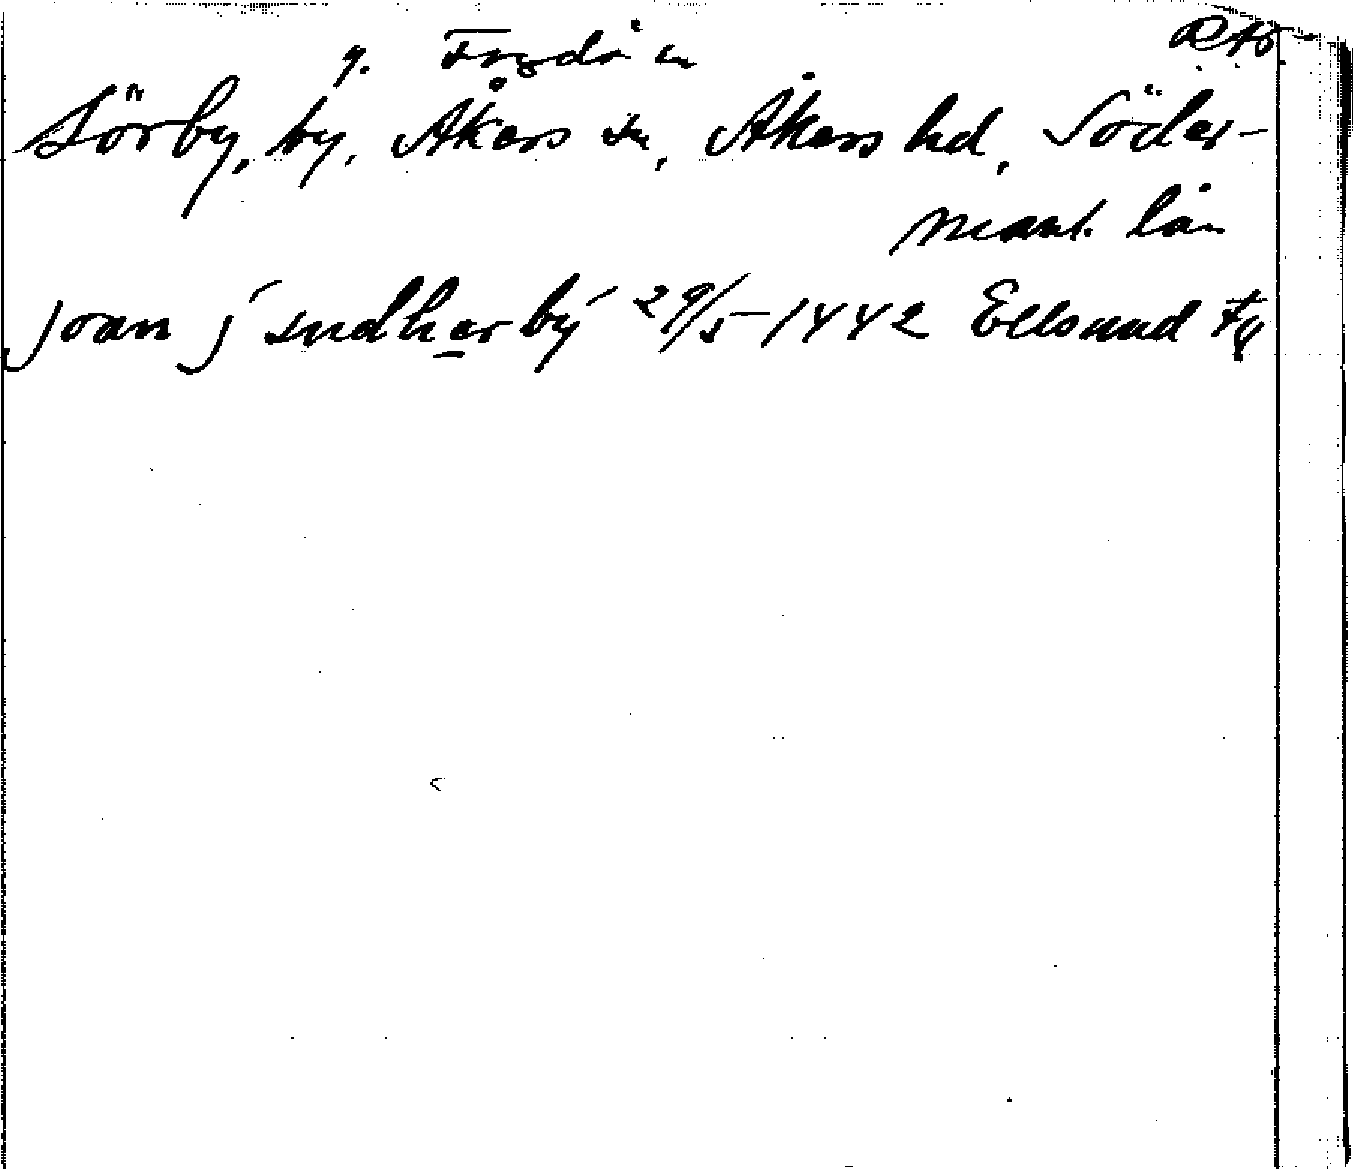 Sörby, by, Åkers sn, Åkers hd, Söder-
manl. län
joan j sudherby 29/5 1442 Ellsund